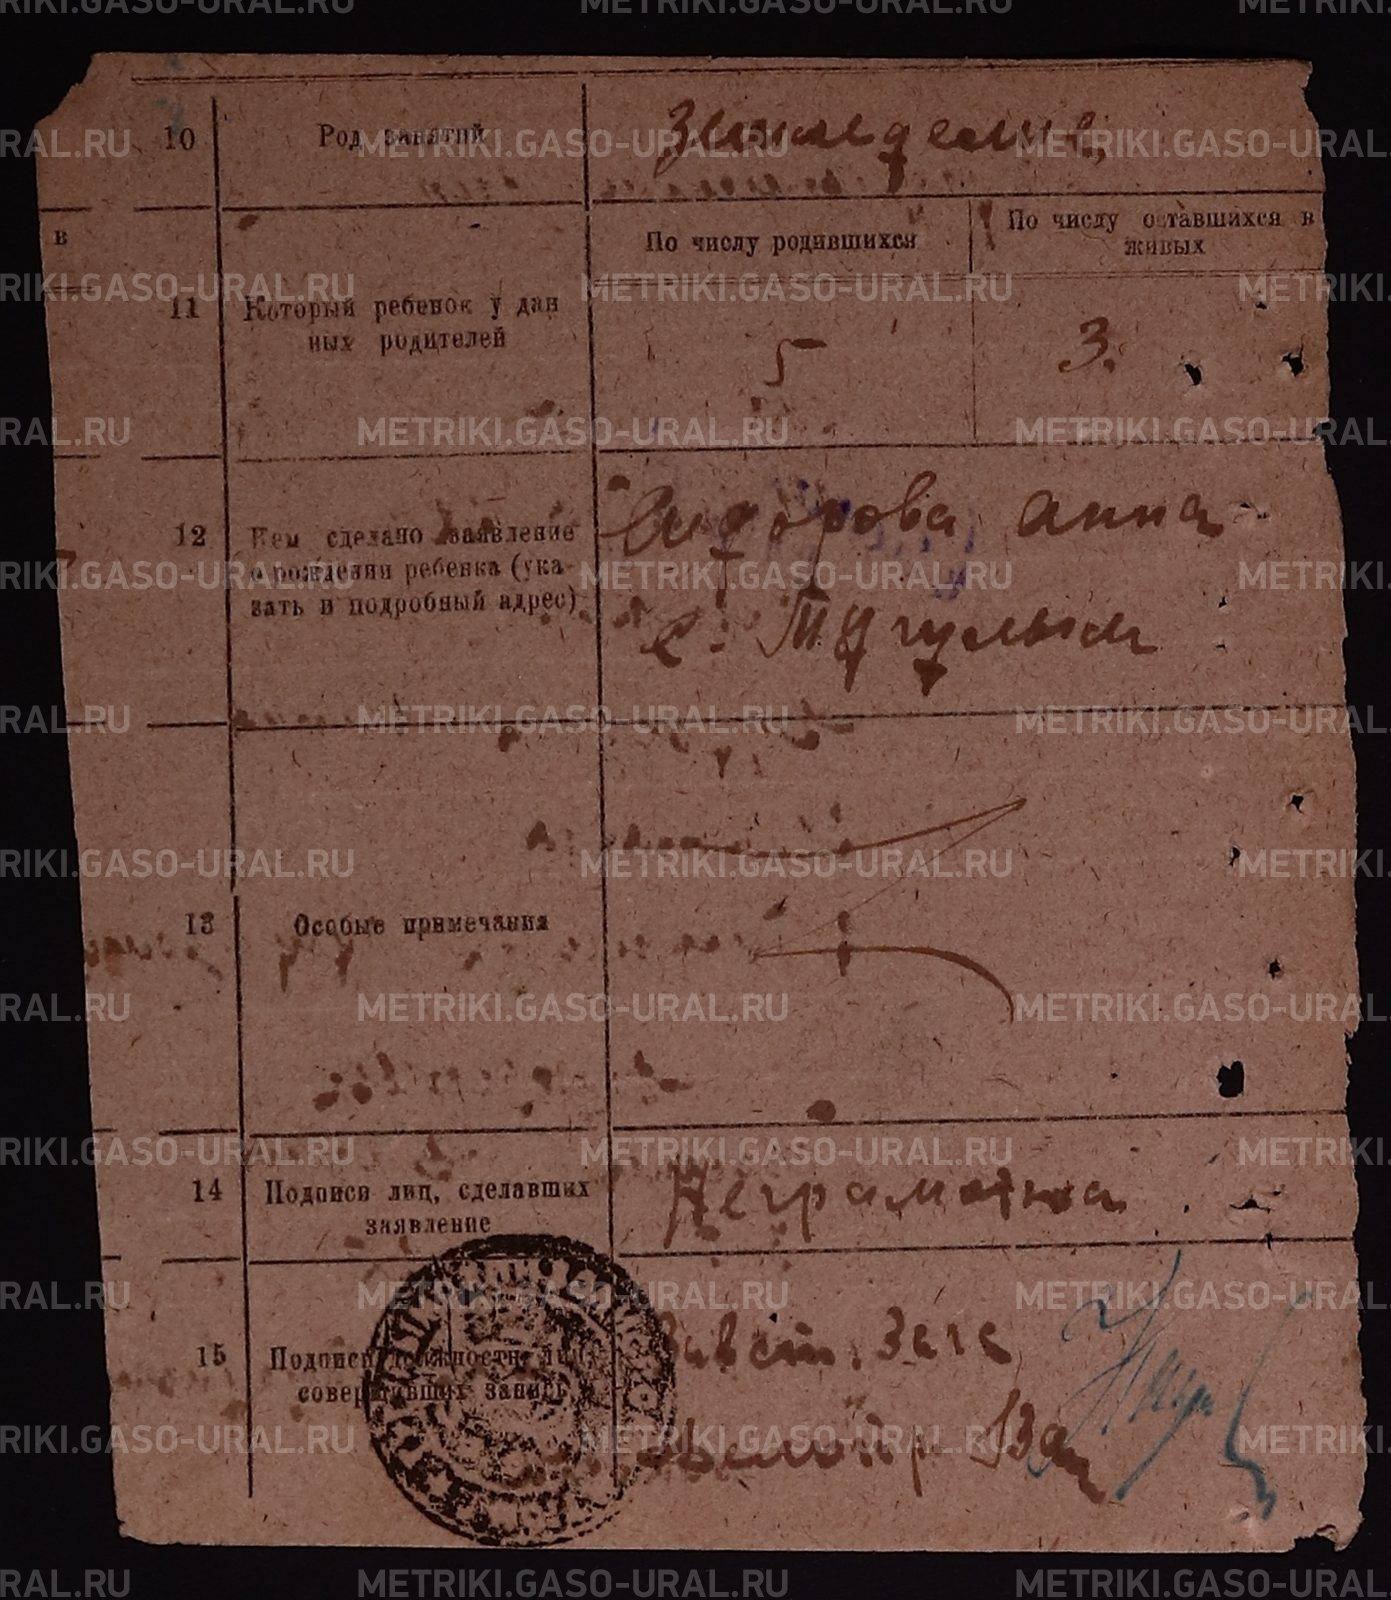 10 Род занятий Земледелие
в
По числу родившихся
По числу оставшихся в
живых
11 Который ребенок у дан
ных родителей
5
3.
12 Кем сделано заявление
о рождении ребенка (ука-
зать и подробный адрес)
Сидорова Анна
с. Тугулым
13 Особые примечания
14 Подписи лиц, сделавших
заявление
Неграмотна
15 Подписи должностн. лиц,
совершивших запись
Загса
METRIKI.GASO-URAL.RU